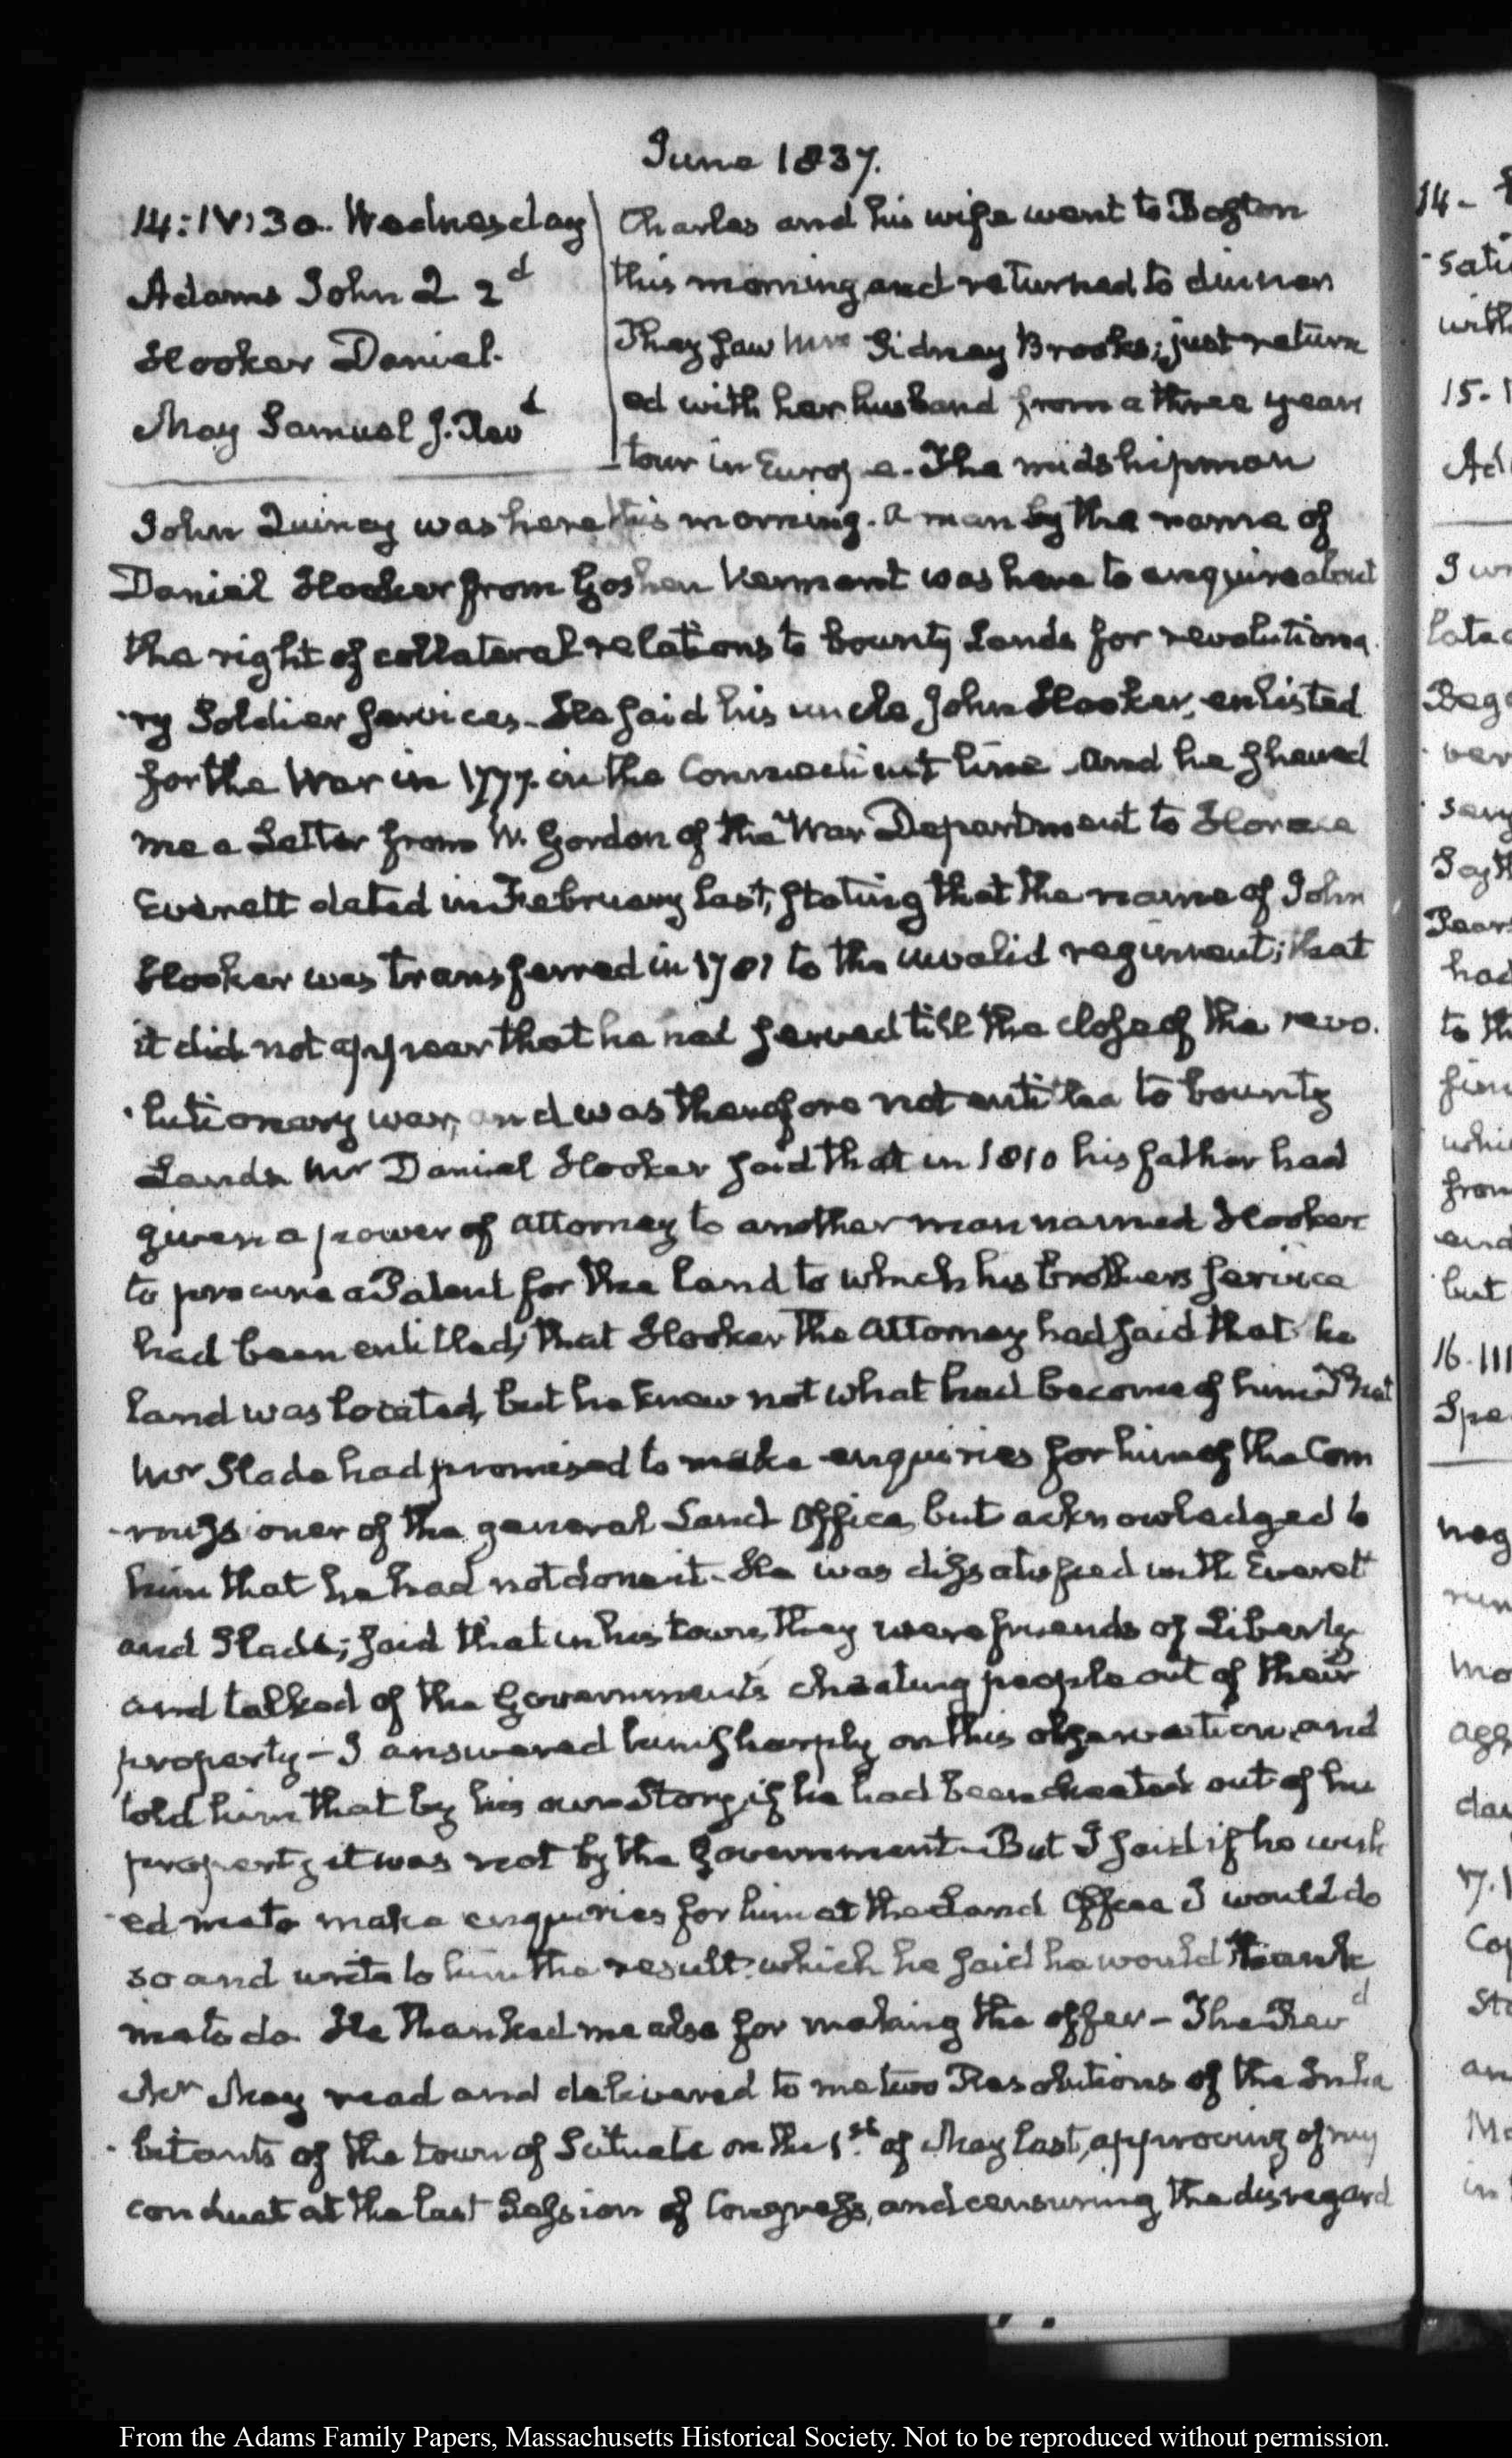 June 1837.
14: IV:30. Wednesday
Adams John Q 2d
Hooker Daniel.
May Samuel J. Revd
Charles and his wife went to Boston
this morning and returned to dinner
They saw Mrs Sidney Brooks; just return
ed with her husband from a three years
tour in Europe. The midshipman
John Quincy was here this morning. A man by the name of
Daniel Hooker from Goshen Vermont was here to enquire about
the right of collateral relations to bounty Lands for revolutiona
-ry Soldier services. He said his uncle John Hooker, enlisted
for the War in 1777. in the Connecticut line and he shewed
me a Letter from W. Gordon of the War Department to Horace
Everett dated in February last, stating that the name of John
Hooker was transferred in 1781 to the invalid regiment; that
it did not appear that he had served till the close of the revo.
-lutionary war, and was therefore not entitled to bounty
Lands. Mr Daniel Hooker said that in 1810 his father had
given a power of Attorney to another man named Hooker
to procure a Patent for the land to which his brothers service
had been entitled, that Hooker the Attorney had said that he
land was located, but he knew not what had become of him. That
Mr Slade had promised to make enquiries for him of the Com
-missioner of the general Land Office, but acknowledged to
him that he had not done it. He was dissatisfied with Everett
and Slade; said that in his town, they were friends of Liberty
and talked of the Government's cheating people out of their
property - I answered him sharply on this observation, and
told him that by his own Story, if he had been cheated out of his
property it was not by the Government - But I said if he wish
-ed me to make enquiries for him at the Land Office I would do
so and write to him the result, which he said he would thank
me to do. He thanked me also for making the offer - The Revd
Mr May read and delivered to me two Resolutions of the Inha
-bitants of the town of Scituate on the 1st of May last, approving of my
conduct at the last Session of Congress, and censuring the disregard
14-
sati
with
15-
Ad
late
ver
say
had
to th
whi
from
and
but
16.III
Spe
neg
Mo
day
17.
Co
St
an
in
From the Adams Family Papers, Massachusetts Historical Society. Not to be reproduced without permission.